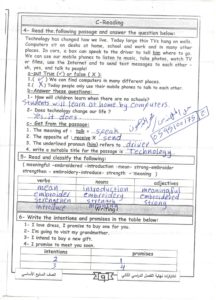 C-Reading
4- Read the following passage and answer the question below:
Technology has changed how we live. Today large thin TVs hang on walls.
Computers sit on desks at home, school and work and in many other
places. In cars, a box can speak to the driver to tell him where to go.
We can use our mobile phones to listen to music, take photos, watch TV
or films, use the Internet and to send text messages to each other -
oh, yes, and talk to people!
a-put True (√) or false ( X ):
1. ( √ ) We can find computers in many different places.
2. ( X ) Today people only use their mobile phones to talk to each other.
b-Answer these questions:
1- How will children learn when there are no schools?
students will learn at home by computers
2- Does technology change our life ?
yes it does
c- Get from the passage:
1- The meaning of : talk = speak
2- The opposite of : receive X send
3. The underlined pronoun (him) refers to driver
4. write a suitable title for the passage is Technology
5- Read and classify the following:
( meaningful -embroidered - introduction -mean- strong-embroider
strengthen - embroidery -introduce - strength - meaning )
verbs nouns adjectives
mean introduction meaningful
embroider embroidery embroidered
strengthen strength strong
introduce meaning
6- Write the intentions and promises in the table below:
1. I love dress, I promise to buy one for you.
2- I'm going to visit my grandmother.
3- I intend to buy a new gift.
4- I promise to meet you soon.
intentions promises
2 1
3 4